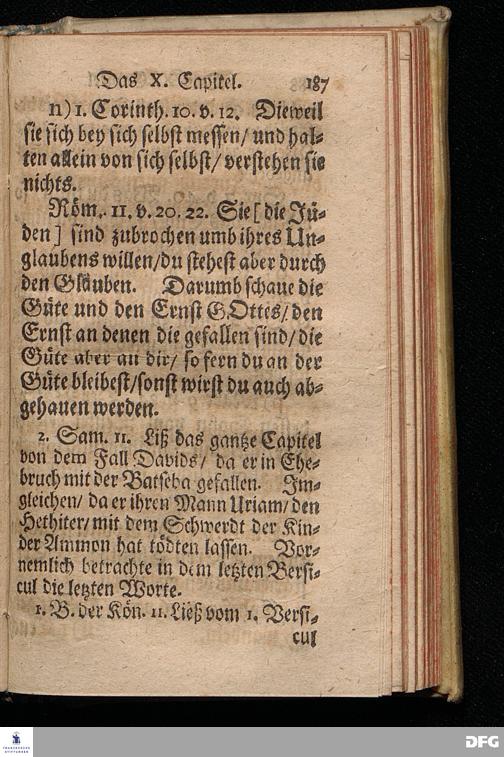 Das X. Capitel. 187
n) 1. Corinth. 10. v. 12. Dieweil
sie sich bey sich selbst messen/ und hal-
ten allein von sich selbst/ verstehen sie
nichts.
Röm. 11. v. 20. 22. Sie [ die Jü-
den ] sind zubrochen umb ihres Un-
glaubens willen/ du stehest aber durch
den Glauben. Darumb schaue die
Güte und den Ernst GOttes/ den
Ernst an denen die gefallen sind/ die
Güte aber an dir/ so fern du an der
Güte bleibest/ sonst wirst du auch ab-
gehauen werden.
2. Sam. 11. Liß das gantze Capitel
von dem Fall Davids/ da er in Ehe-
bruch mit der Batseba gefallen. Im-
gleichen/ da er ihren Mann Uriam/ den
Hethiter/ mit dem Schwerdt der Kin-
der Ammon hat tödten lassen. Vor-
nemlich betrachte in dem letzten Versi-
cul die letzten Worte.
1. B. der Kön. 11. Ließ vom 1. Versi-
cul
FRANCKESCHE
STIFTUNGEN
DFG